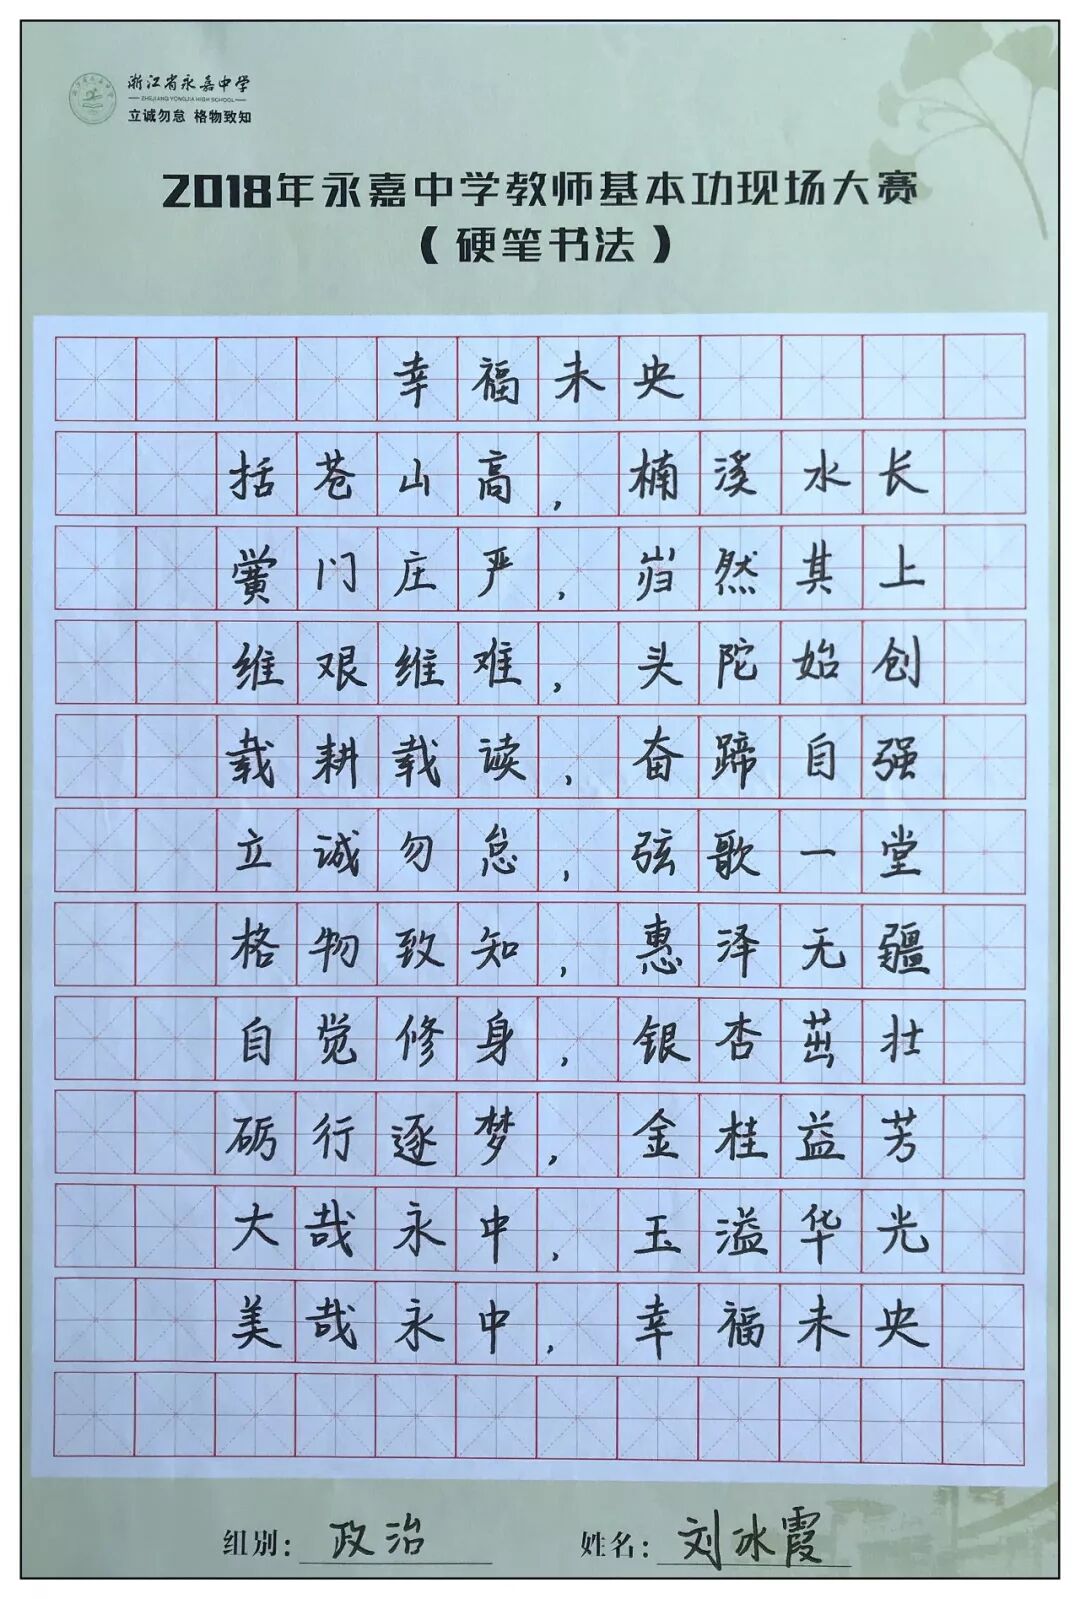 浙江省永嘉中学
ZHEJIANG YONGJIA HIGH SCHOOL
立诚勿怠 格物致知
2018年永嘉中学教师基本功现场大赛
（硬笔书法）
幸福未央
括苍山高，楠溪水长
黉门庄严，岿然其上
维艰维难，头陀始创
载耕载读，奋蹄自强
立诚勿怠，弦歌一堂
格物致知，惠泽无疆
自觉修身，银杏茁壮
砺行逐梦，金桂益芳
大哉永中，玉溢华光
美哉永中，幸福未央
组别：政治 姓名：刘冰霞